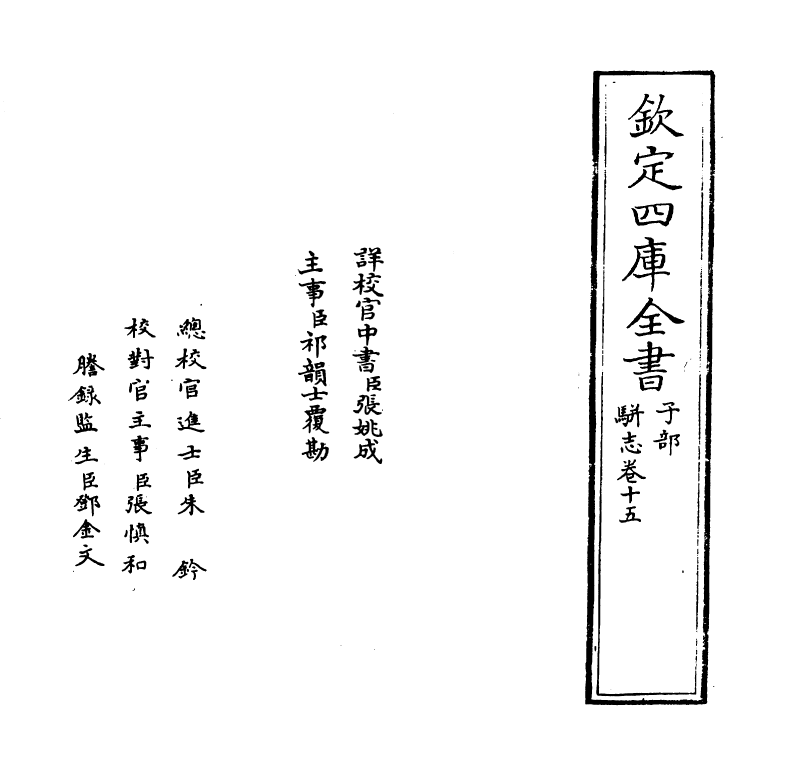 欽定四庫全書
子部
駢志卷十五
詳校官中書臣張姚成
主事臣祁韻士覆勘
總校官進士臣朱鈐
校對官主事臣張慎和
謄錄監生臣鄧金文